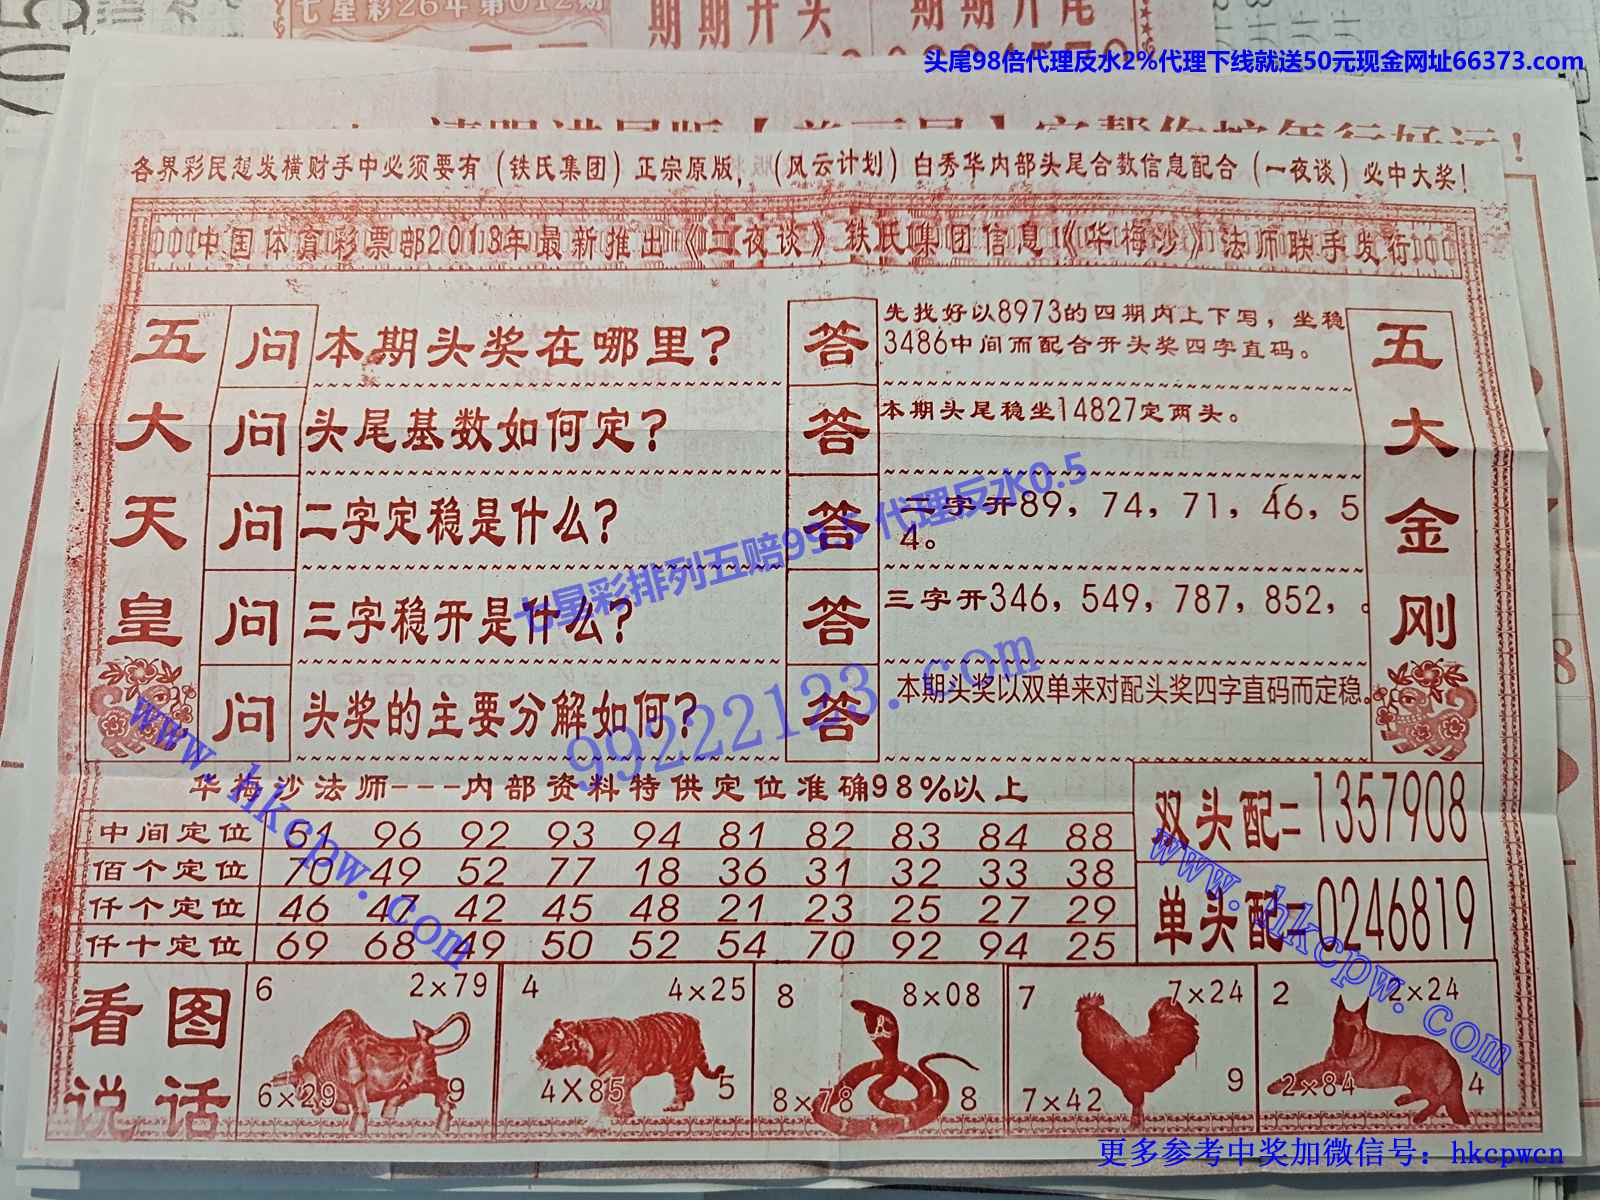 七星彩26年第012期
期期开头 期期开尾
头尾98倍代理反水2%代理下线就送50元现金网址66373.com
各界彩民想发横财手中必须要有(铁氏集团)正宗原版,(风云计划)白秀华内部头尾合数信息配合(一夜谈)必中大奖!
中国体育彩票邮2013年最新推出《二夜谈》铁氏集团信息《华梅沙》法师联手发行
五大天皇
五大金刚
问 本期头奖在哪里? 答 先找好以8973的四期内上下写,坐稳
3486中间而配合开头奖四字直码。
问 头尾基数如何定? 答 本期头尾稳坐14827定两头。
问 二字定稳是什么? 答 二字开89,74,71,46,5
4。
问 三字稳开是什么? 答 三字开346,549,787,852,。
问 头奖的主要分解如何? 答 本期头奖以双单来对配头奖四字直码而定稳。
七星彩排列五赔99.5 代理反水0.5
99222123.com
www.hkcpw.com
www.hkcpw.com
华梅沙法师---内部资料特供定位准确98%以上
中间定位 51 96 92 93 94 81 82 83 84 88
佰个定位 70 49 52 77 18 36 31 32 33 38
仟个定位 46 47 42 45 48 21 23 25 27 29
仟十定位 69 68 49 50 52 54 70 92 94 25
双头配=1357908
单头配=0246819
看图
说话
6 2×79 4 4×25 8 8×08 7 7×24 2 2×24
6×29 9 4X85 5 8×78 8 7×42 9 2×84 4
更多参考中奖加微信号:hkcpwcn